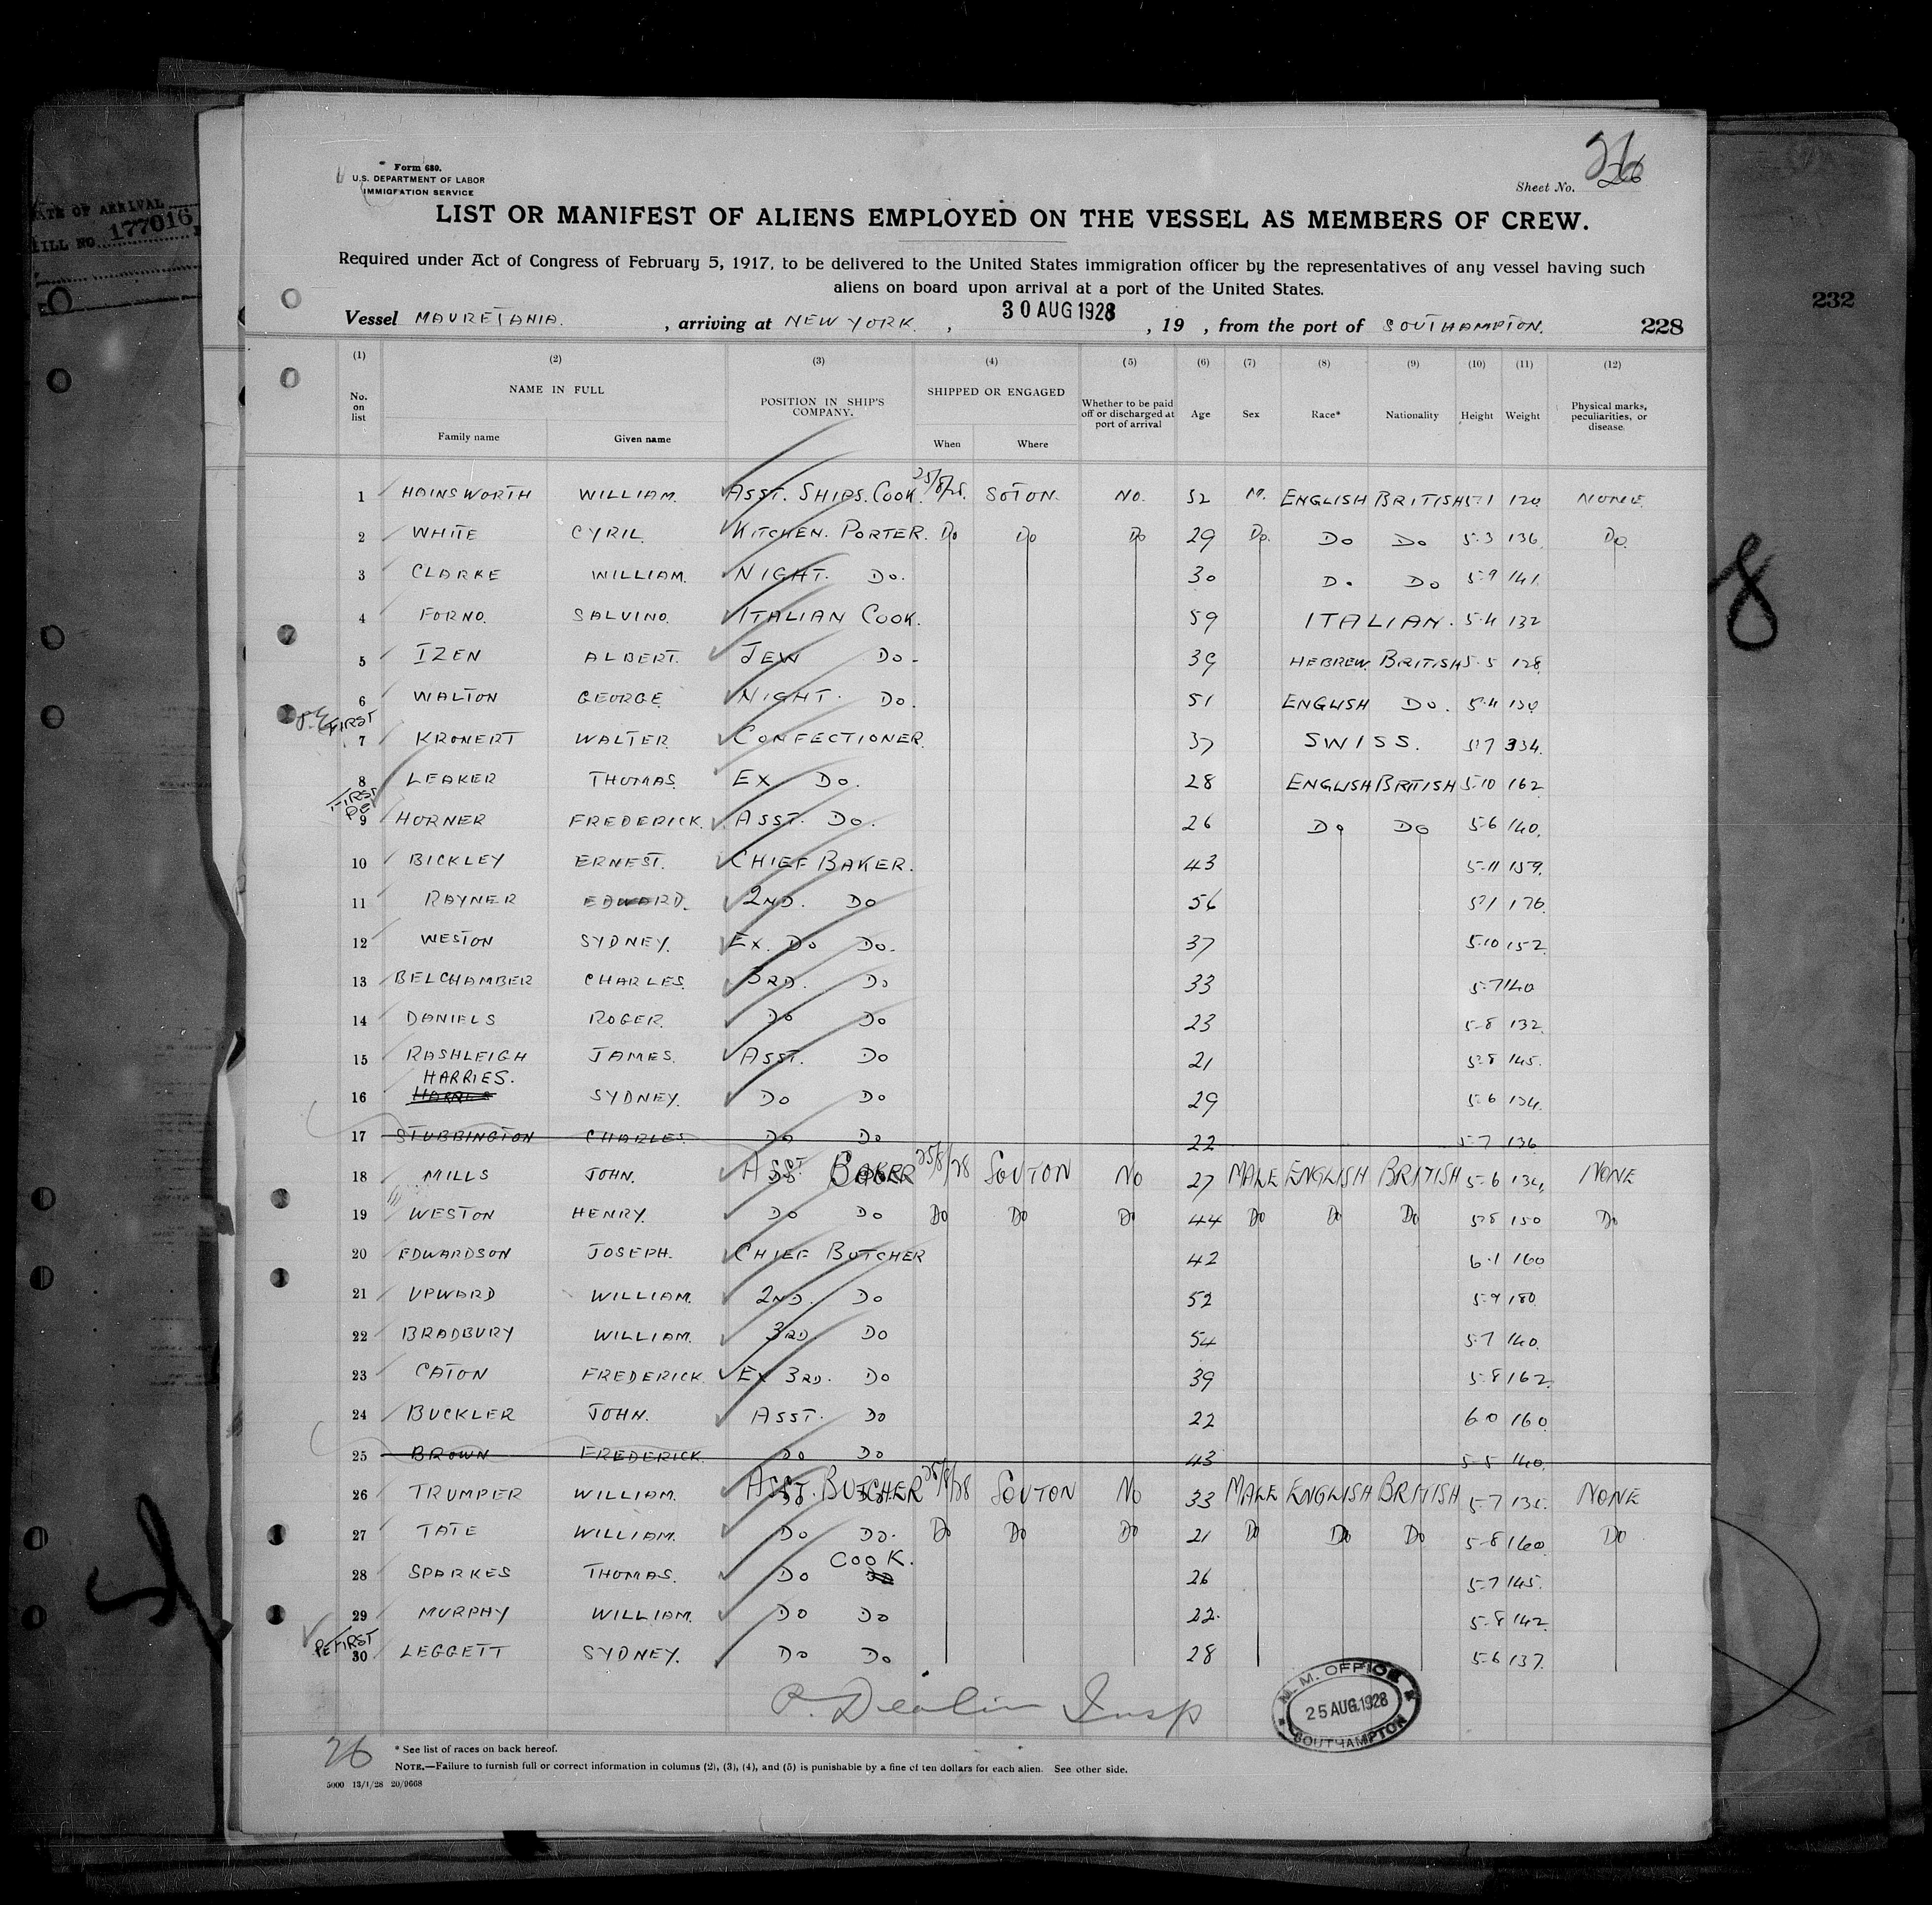 DATE OF ARRIVAL
177016
232
26
Form 680.
U.S. DEPARTMENT OF LABOR
IMMIGRATION SERVICE
Sheet No. 26
LIST OR MANIFEST OF ALIENS EMPLOYED ON THE VESSEL AS MEMBERS OF CREW.
Required under Act of Congress of February 5, 1917, to be delivered to the United States immigration officer by the representatives of any vessel having such
aliens on board upon arrival at a port of the United States.
Vessel MAURETANIA. , arriving at NEW YORK. , 30 AUG 1928 , 19 , from the port of SOUTHAMPTON. 228
(1) (2) (3) (4) (5) (6) (7) (8) (9) (10) (11) (12)
No. on list NAME IN FULL POSITION IN SHIP'S COMPANY. SHIPPED OR ENGAGED Whether to be paid off or discharged at port of arrival Age Sex Race* Nationality Height Weight Physical marks, peculiarities, or disease.
Family name Given name When Where
1 HAINSWORTH WILLIAM. ASST. SHIPS. COOK. 25/8/28. SOTON. NO. 52 M. ENGLISH BRITISH 5-1 120 NONE.
2 WHITE CYRIL. KITCHEN. PORTER. Do Do Do 29 Do. Do Do 5-3 136 Do.
3 CLARKE WILLIAM. NIGHT. Do. 30 Do Do 5-9 141.
4 FORNO. SALVINO. ITALIAN COOK. 59 ITALIAN. 5-4 132
5 IZEN ALBERT. JEW Do. 39 HEBREW. BRITISH 5-5 128.
6 WALTON GEORGE NIGHT. Do. 51 ENGLISH Do. 5-4 130
P.E. FIRST
7 KRONERT WALTER CONFECTIONER. 37 SWISS. 5-7 334.
8 LEAKER THOMAS. EX Do. 28 ENGLISH BRITISH 5-10 162
FIRST PE
9 HORNER FREDERICK. ASST. Do. 26 Do Do 5-6 140.
10 BICKLEY ERNEST. CHIEF BAKER. 43 5-11 159.
11 RAYNER EDWARD. 2ND. Do 56 5-1 176.
12 WESTON SYDNEY. EX. Do Do. 37 5-10 152
13 BELCHAMBER CHARLES. 3RD. Do 33 5-7 140
14 DANIELS ROGER. Do Do 23 5-8 132.
15 RASHLEIGH JAMES. ASST. Do 21 5-8 145.
HARRIES.
16 SYDNEY. Do Do 29 5-6 134.
17 STUBBINGTON CHARLES. Do Do 22 5-7 136
18 MILLS JOHN. ASST BAKER 25/8/28 SOUTON NO 27 MALE ENGLISH BRITISH 5-6 134, NONE
19 WESTON HENRY. Do Do Do Do Do 44 Do Do Do 5-8 150 Do
20 EDWARDSON JOSEPH. CHIEF BUTCHER 42 6-1 160
21 UPWARD WILLIAM. 2ND. Do 52 5-9 180.
22 BRADBURY WILLIAM. 3RD. Do 54 5-7 140.
23 CATON FREDERICK. EX 3RD. Do 39 5-8 162.
24 BUCKLER JOHN. ASST. Do 22 6-0 160.
25 BROWN FREDERICK. Do Do 43 5-5 140.
26 TRUMPER WILLIAM. ASST. BUTCHER 25/8/28 SOUTON NO 33 MALE ENGLISH BRITISH 5-7 135. NONE
27 TATE WILLIAM. Do Do. Do Do Do 21 Do Do Do 5-8 160 Do
COOK.
28 SPARKES THOMAS. Do 26 5-7 145.
29 MURPHY WILLIAM. Do Do 22. 5-8 142.
PE FIRST
30 LEGGETT SYDNEY. Do Do 28 5-6 137.
Insp
M. M. OFFICE
25 AUG.1928
SOUTHAMPTON
26
* See list of races on back hereof.
NOTE.—Failure to furnish full or correct information in columns (2), (3), (4), and (5) is punishable by a fine of ten dollars for each alien. See other side.
5000 13/1/28 20/9668
8